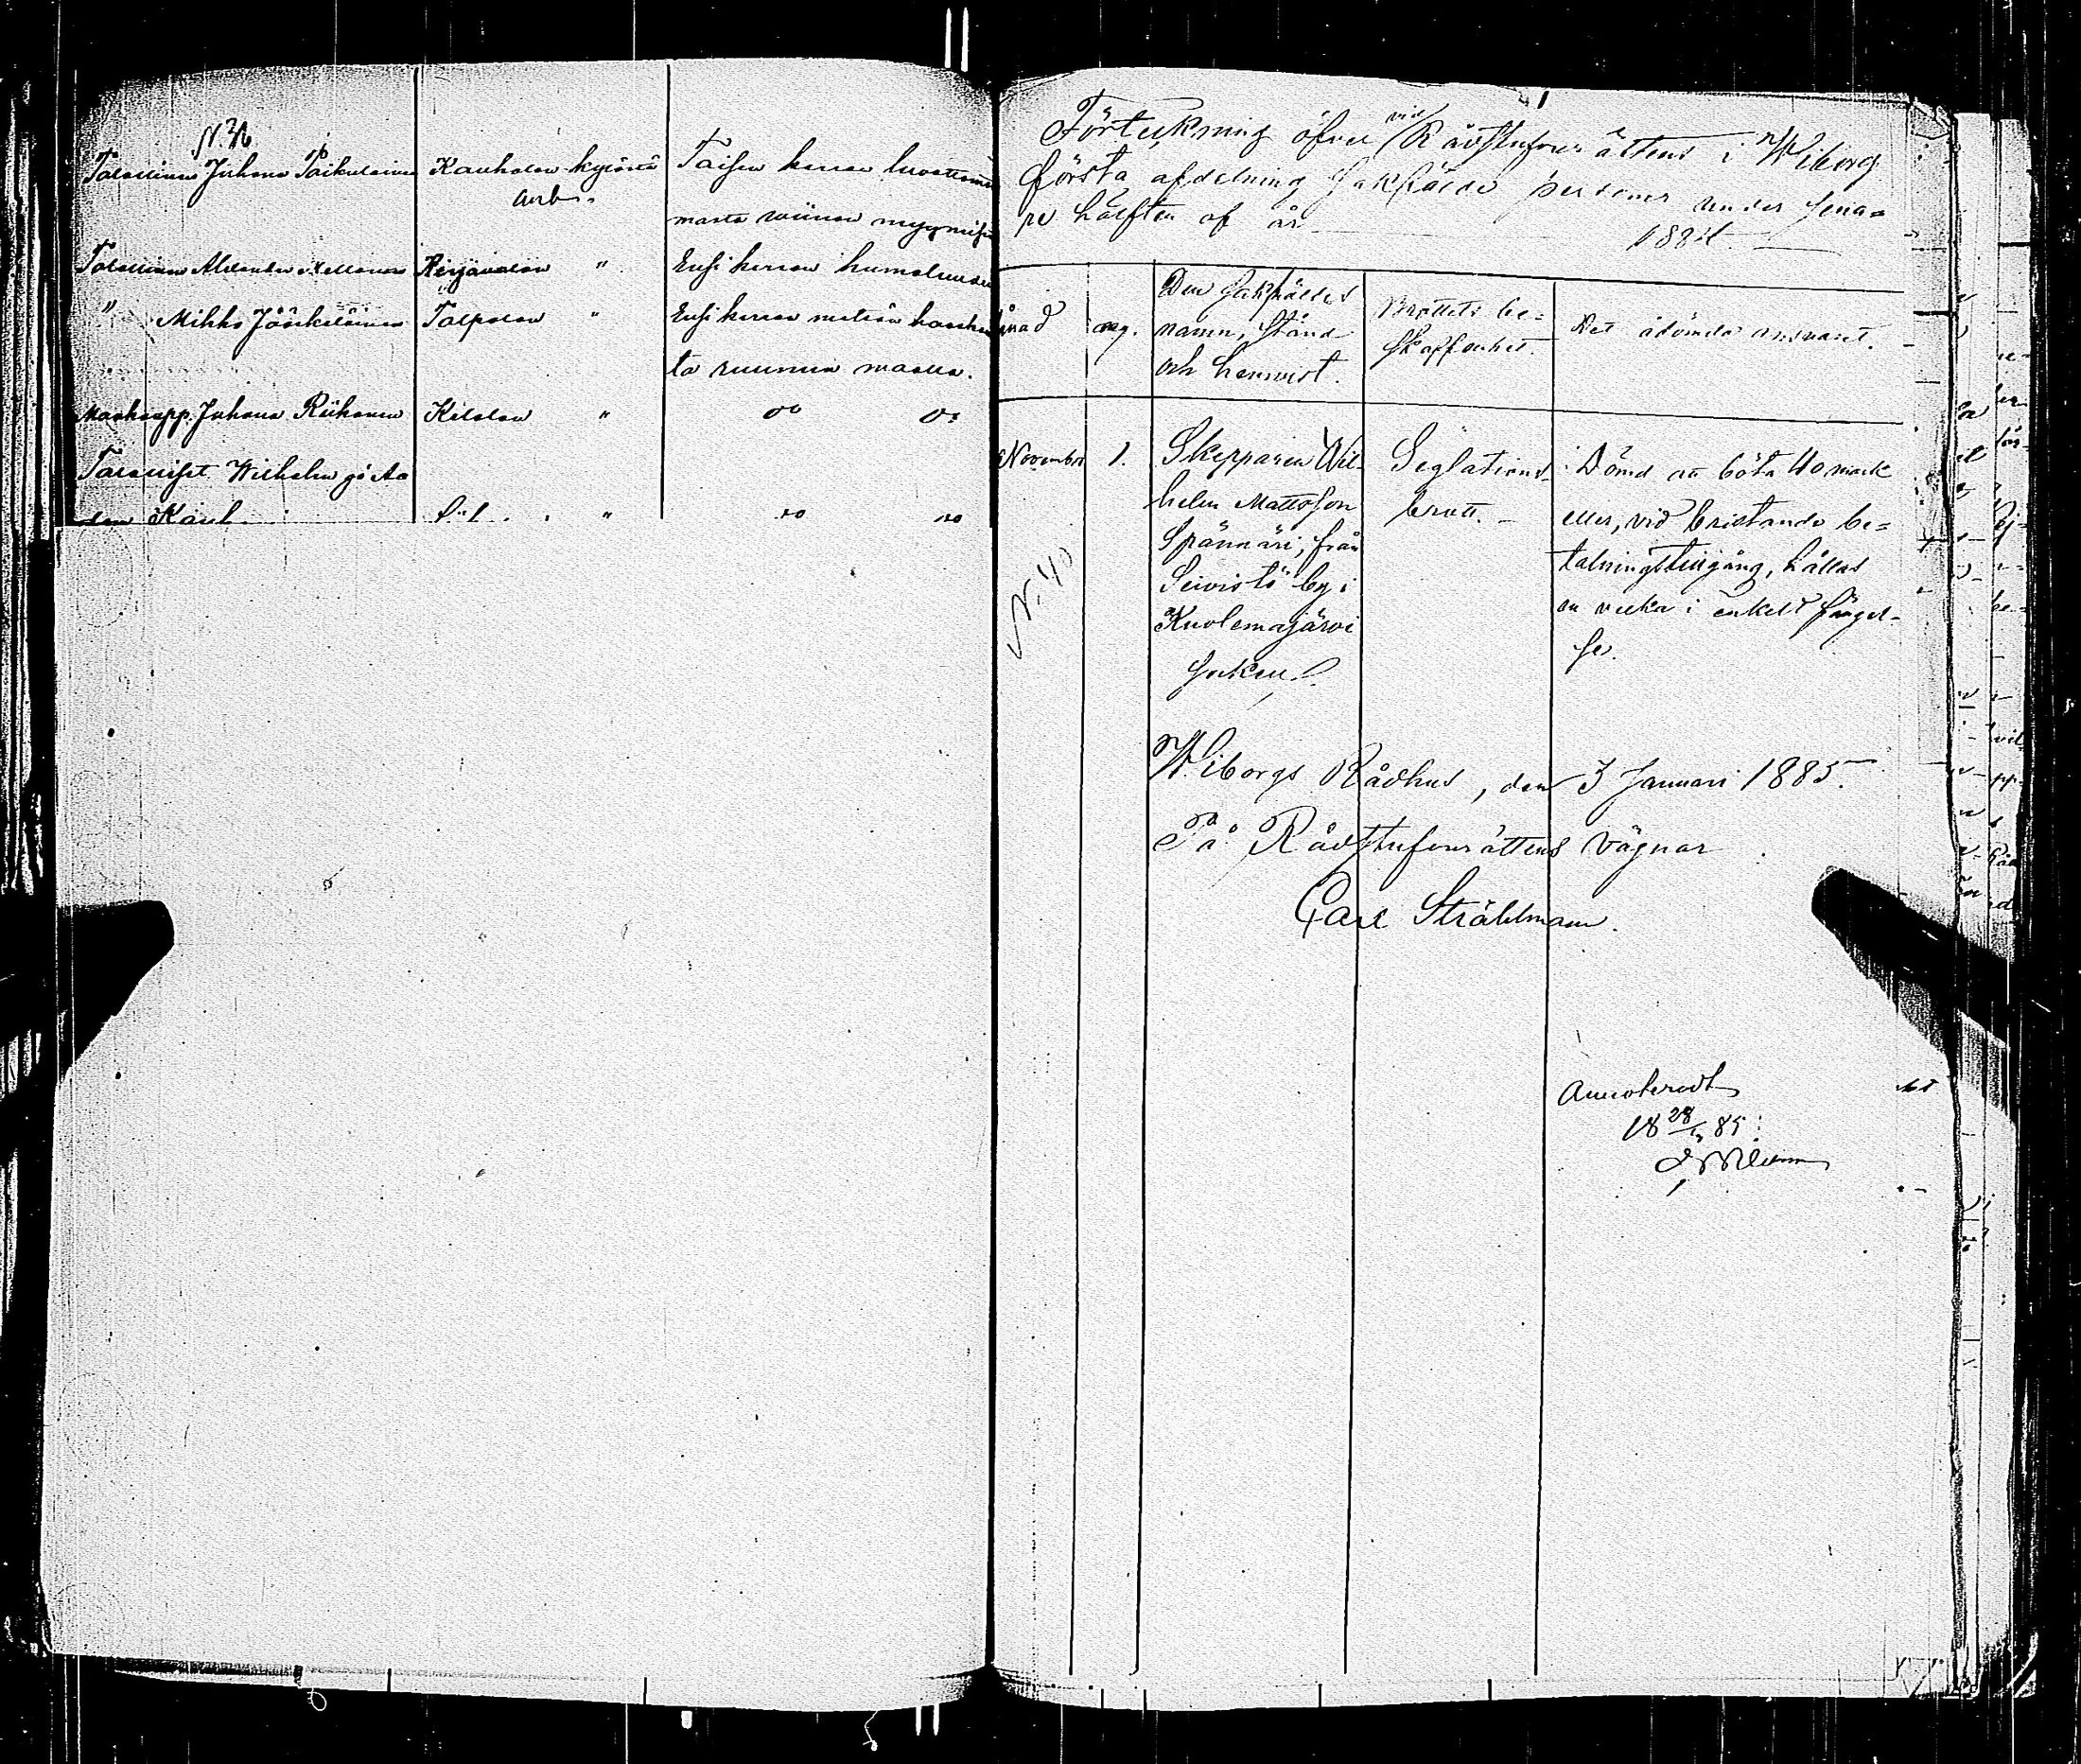 Talollinen Juhana Paikalainen Kauhalan kylästä Taisen kerran luvattoma
masta wiinan myymisestä
Talollinen Aleksander Kellonen Kirjavalan " Ensi kerran humaluuden
" Mikko Jääskeläinen Talpalan " Ensi kerran metsän haaska
ta ruunun maalla.
Juhana Riikonen Kilalan " do do
Wilhelm
" do do
Förteckning öfver vid Rådstufvurättens i Wiborg
första afdelning sakfälde personer under sena=
re hälften af år 1884
månad
dag.
Den sakfälldes
namn, stånd
och hemvist.
Brottets be=
skaffenhet.
Det ådömda ansvaret.
November
1.
Skepparen Wil-
helm Mattsson
Spännäri, från
Seivistö by i
Kuolemajärvi
socken.
Seglations-
brott. -
Dömd att böta 40 mark
eller, vid bristande be=
talningstillgång, hållas
en vecka i enkelt fängel-
se.
N. 40
Wiborgs Rådhus, den 3 Januari 1885.
På Rådstufvurättens vägnar
Carl Stråhlmann.
Annoteradt
18 28/5 85.